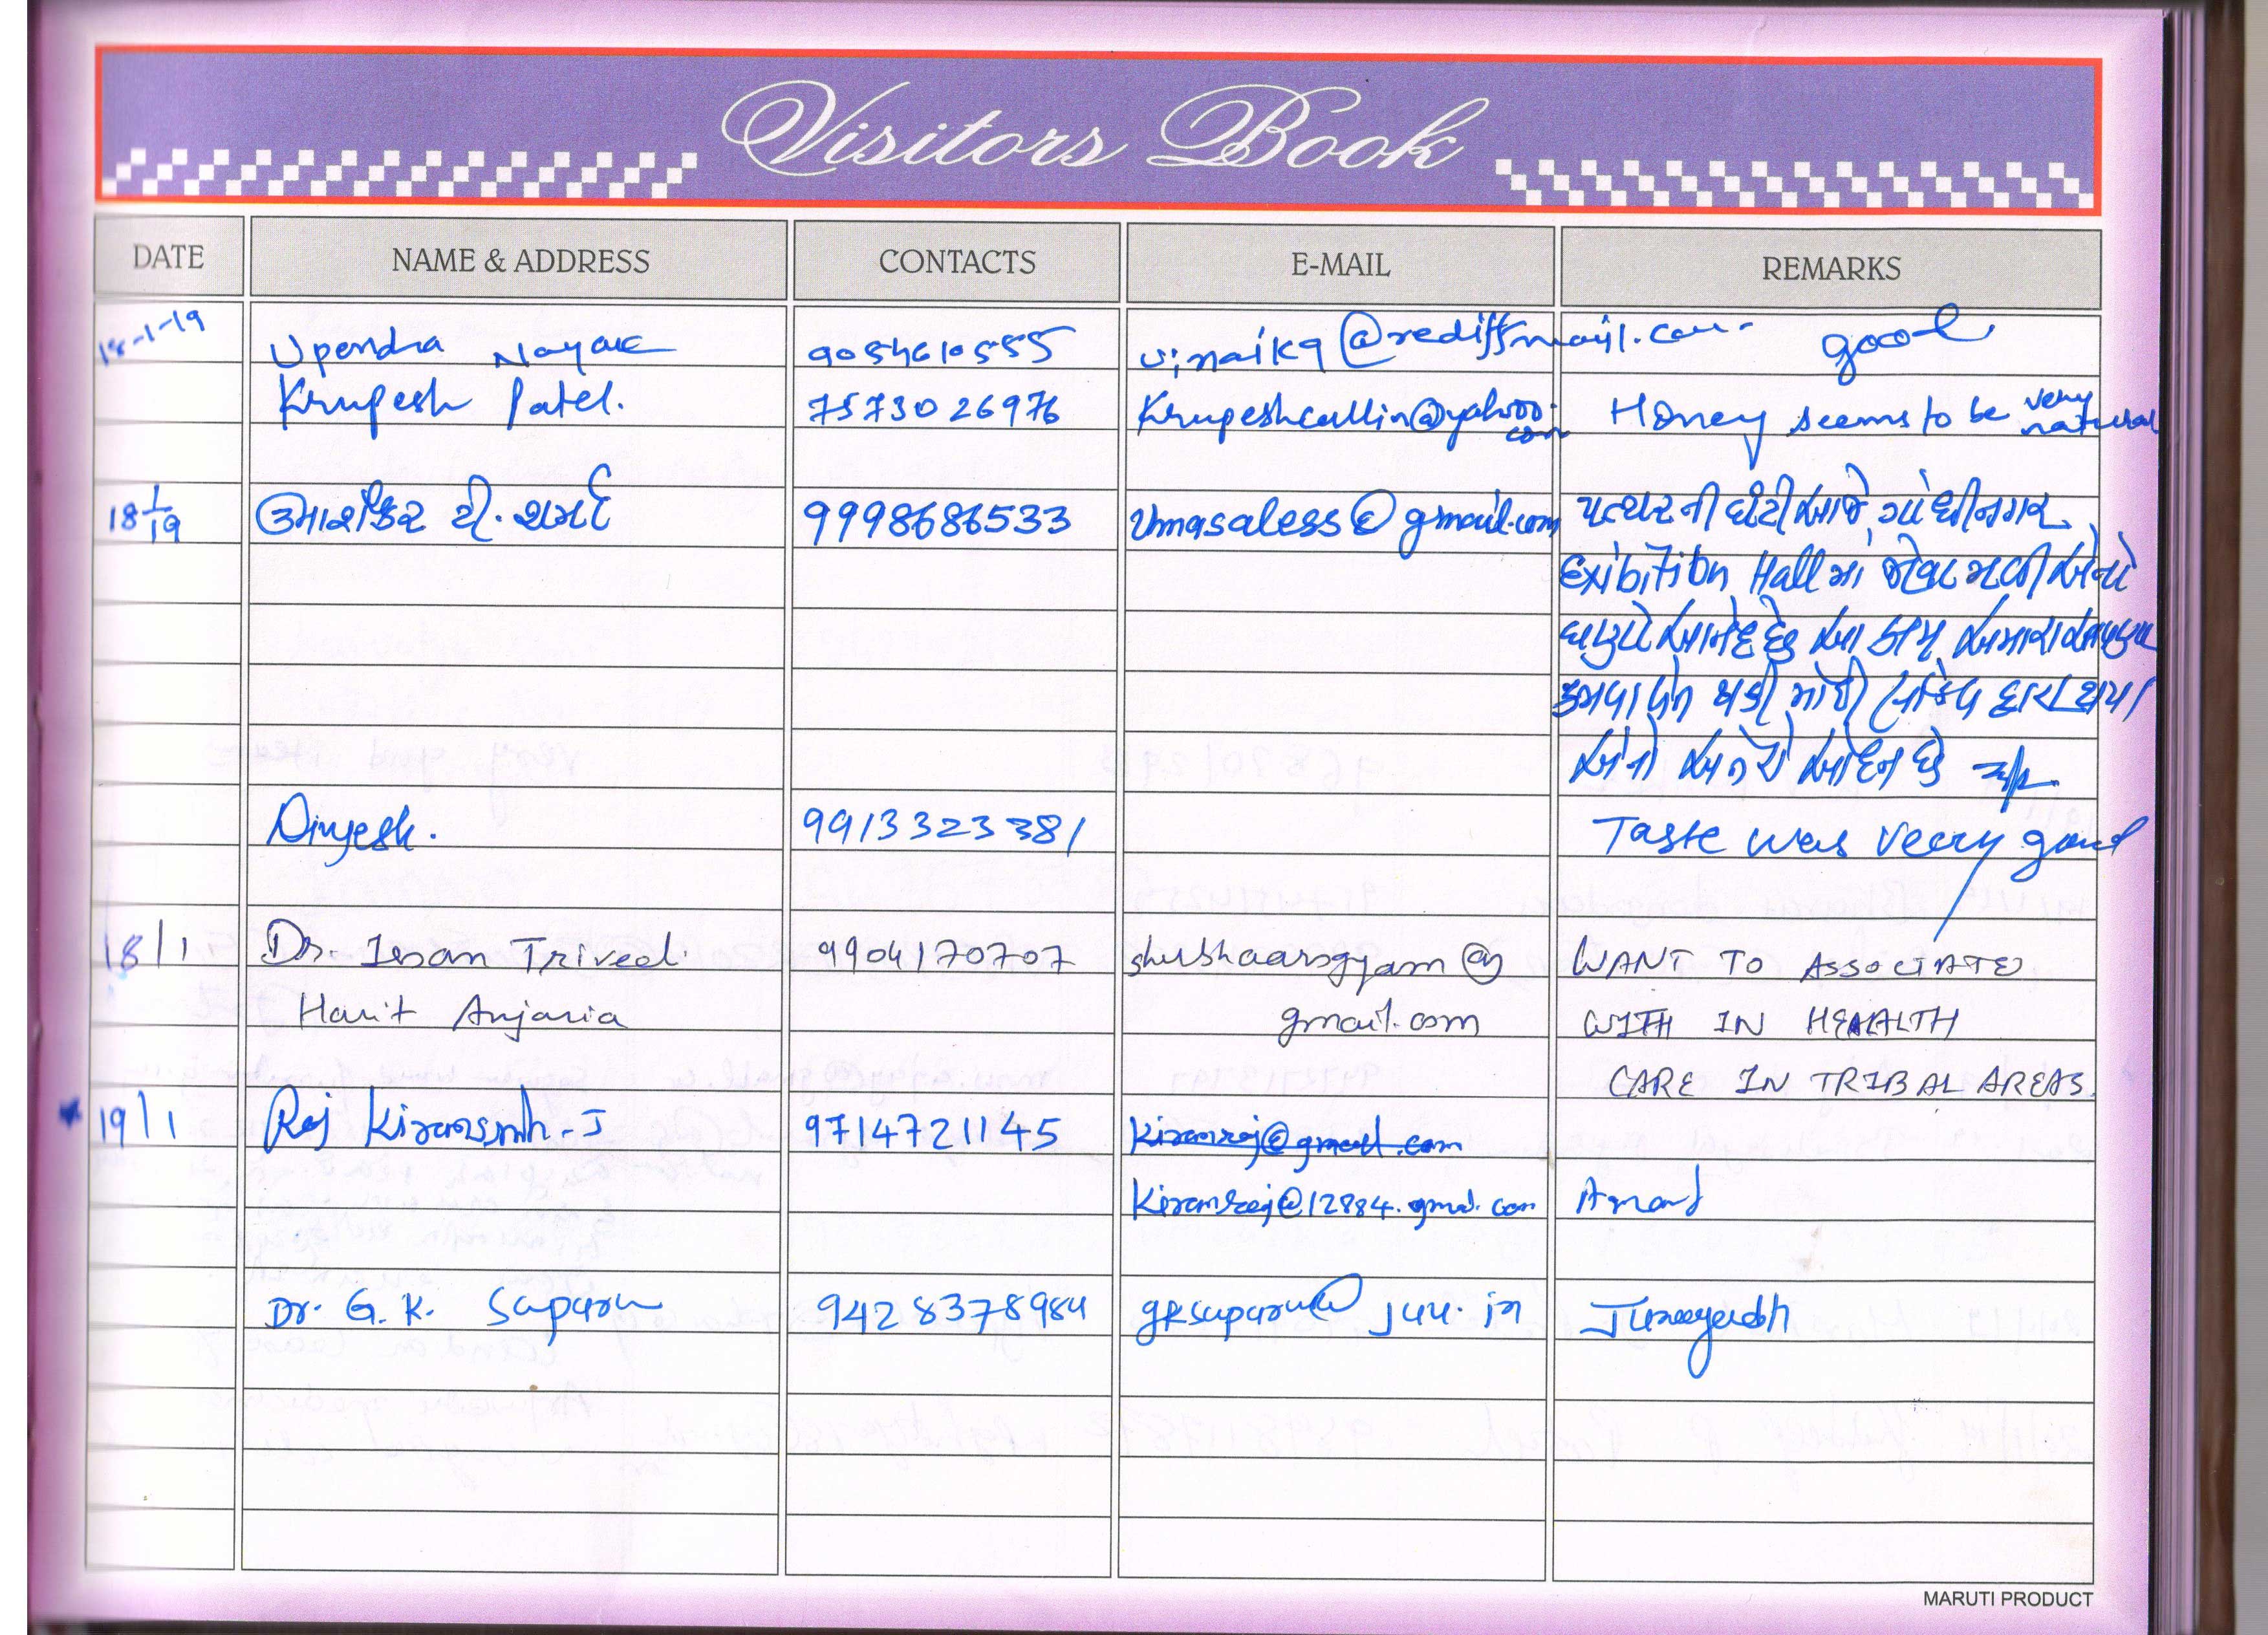 Visitors Book
DATE NAME & ADDRESS CONTACTS E-MAIL REMARKS
18-1-19 Upendra Nayak 9054610555 vinaik9@rediffmail.com good
Krupesh Patel. 7573026976 Krupeshcullin@yahoo.com Honey seems to be very natural
18 1/19 શર્મા 9998686533 umasaless@gmail.com પત્થર ની ઘંટી આજે ગાંધીનગર
Exibition Hall માં જોવા મળી એનો
ઘણો આનંદ છે આ
અને આનંદ છે
Dinyesh. 9913323381 Taste was veery good
18/1 Dr. Isan Trivedi 9904170707 shubhaarogyam@ WANT TO ASSOCIATE
Harit Anjaria gmail.com WITH IN HEALTH
CARE IN TRIBAL AREAS.
19/1 Raj Kiransinh-J 9714721145 kiranraj@gmail.com
Kiranraj@12884.gmal.com Anand
Dr. G. K. Sapara 9428378984 gksapara@jau.in Junagadh
MARUTI PRODUCT